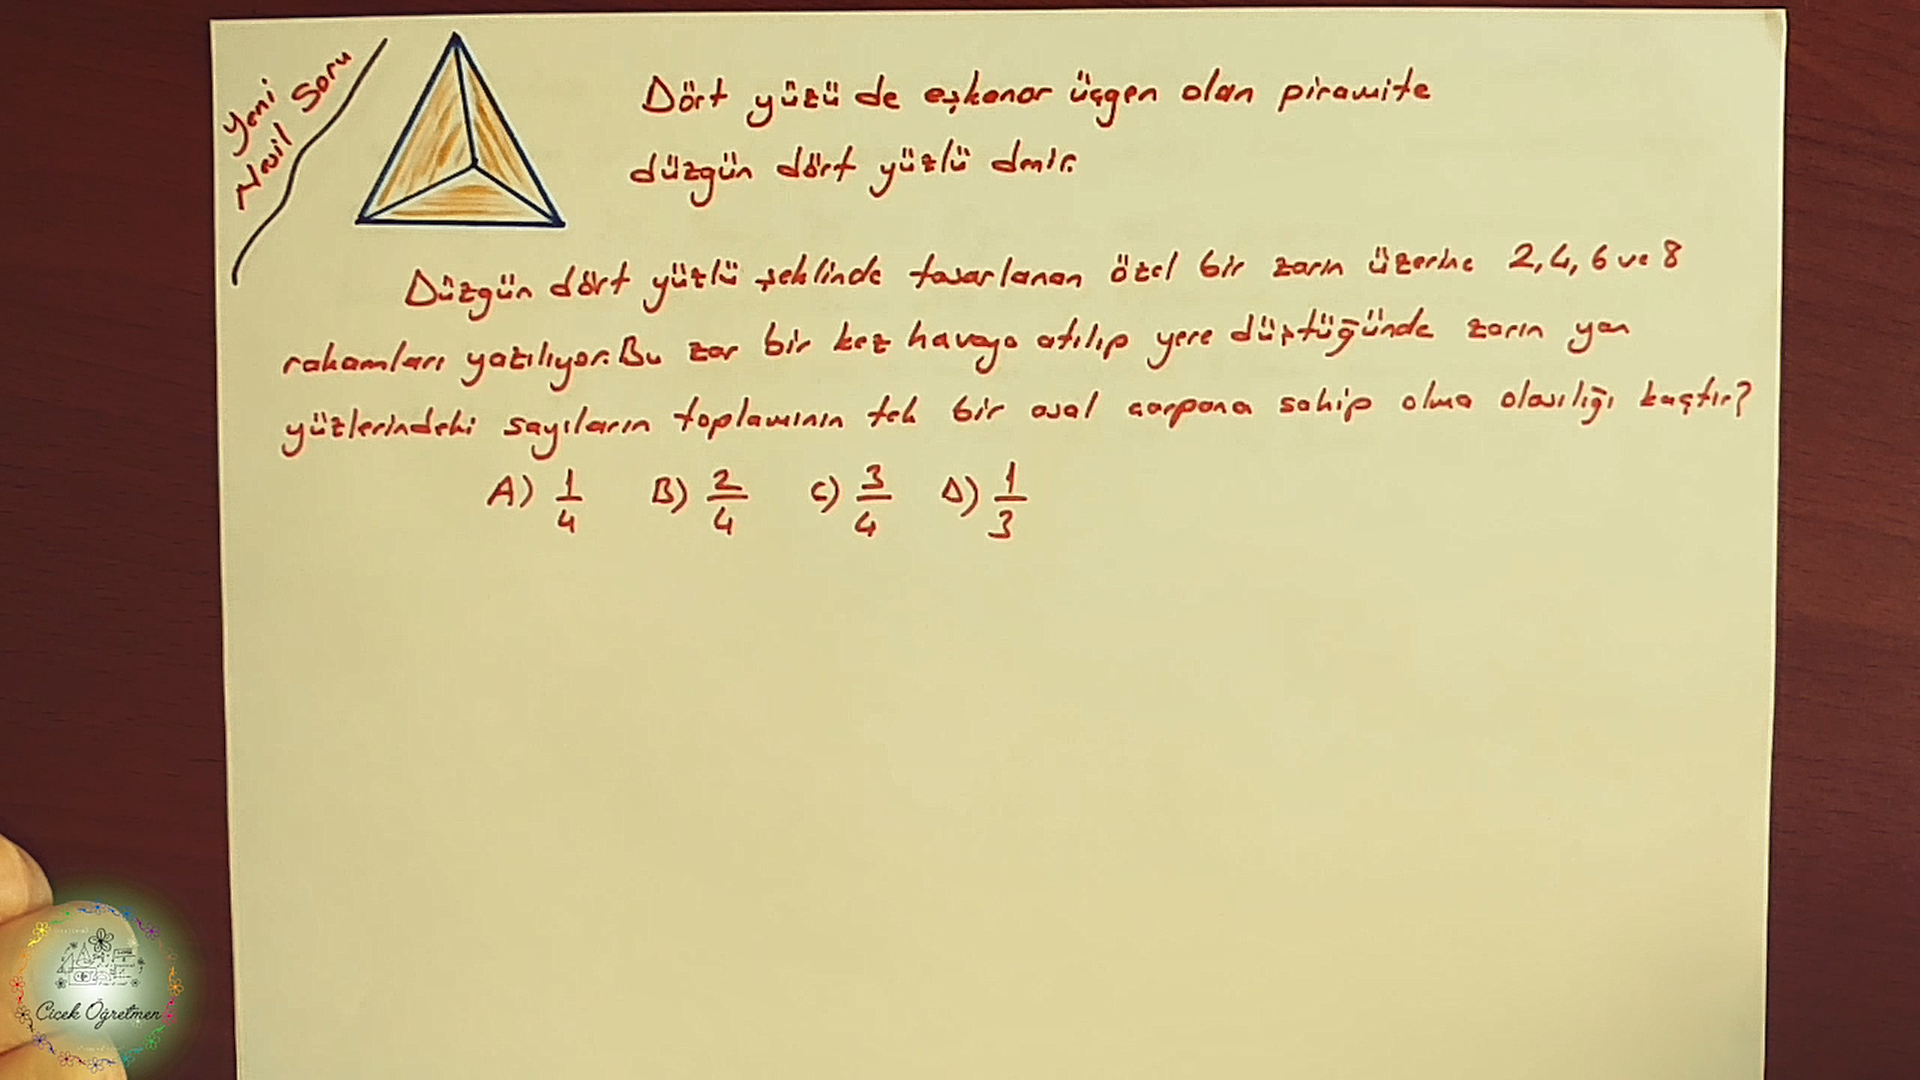 Yeni
Nesil Soru
Dört yüzü de eşkenar üçgen olan piramite
düzgün dört yüzlü denir.
Düzgün dört yüzlü şeklinde tasarlanan özel bir zarın üzerine 2, 4, 6 ve 8
rakamları yazılıyor. Bu zar bir kez havaya atılıp yere düştüğünde zarın yan
yüzlerindeki sayıların toplamının tek bir asal çarpana sahip olma olasılığı kaçtır?
A) 1/4 B) 2/4 C) 3/4 D) 1/3
Cicek Öğretmen